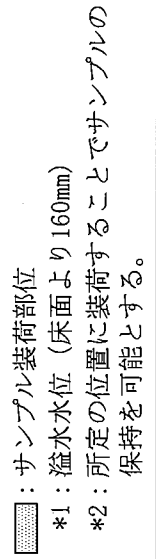 ：サンプル装荷部位
*1：溢水水位（床面より160mm）
*2：所定の位置に装荷することでサンプルの
保持を可能とする。